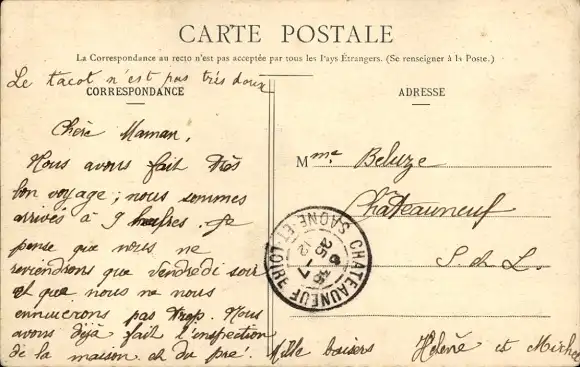 CARTE POSTALE
La Correspondance au recto n'est pas acceptée par tous les Pays Étrangers. (Se renseigner à la Poste.)
Le tacot n'est pas très doux
CORRESPONDANCE
Chère Maman,
Nous avons fait très
bon voyage; nous sommes
arrivés à 9 heures. Je
pense que nous ne
reviendrons que vendredi soir
et que nous ne nous
ennuierons pas trop. Nous
avons déjà fait l'inspection
de la maison et du pré. Mille baisers Hélène et Michel
ADRESSE
Mme Beluze
Châteauneuf
S. et L.
CHATEAUNEUF
SAONE-ET-LOIRE
25 -7